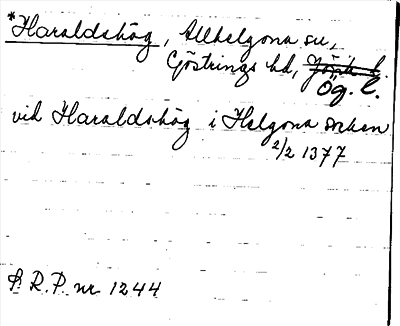 *Haraldshög, Allhelgona sn,
Göstrings hd, Ög. l.
vid Haraldshög i Helgona socken
2/2 1377
S. R. P. nr 1244